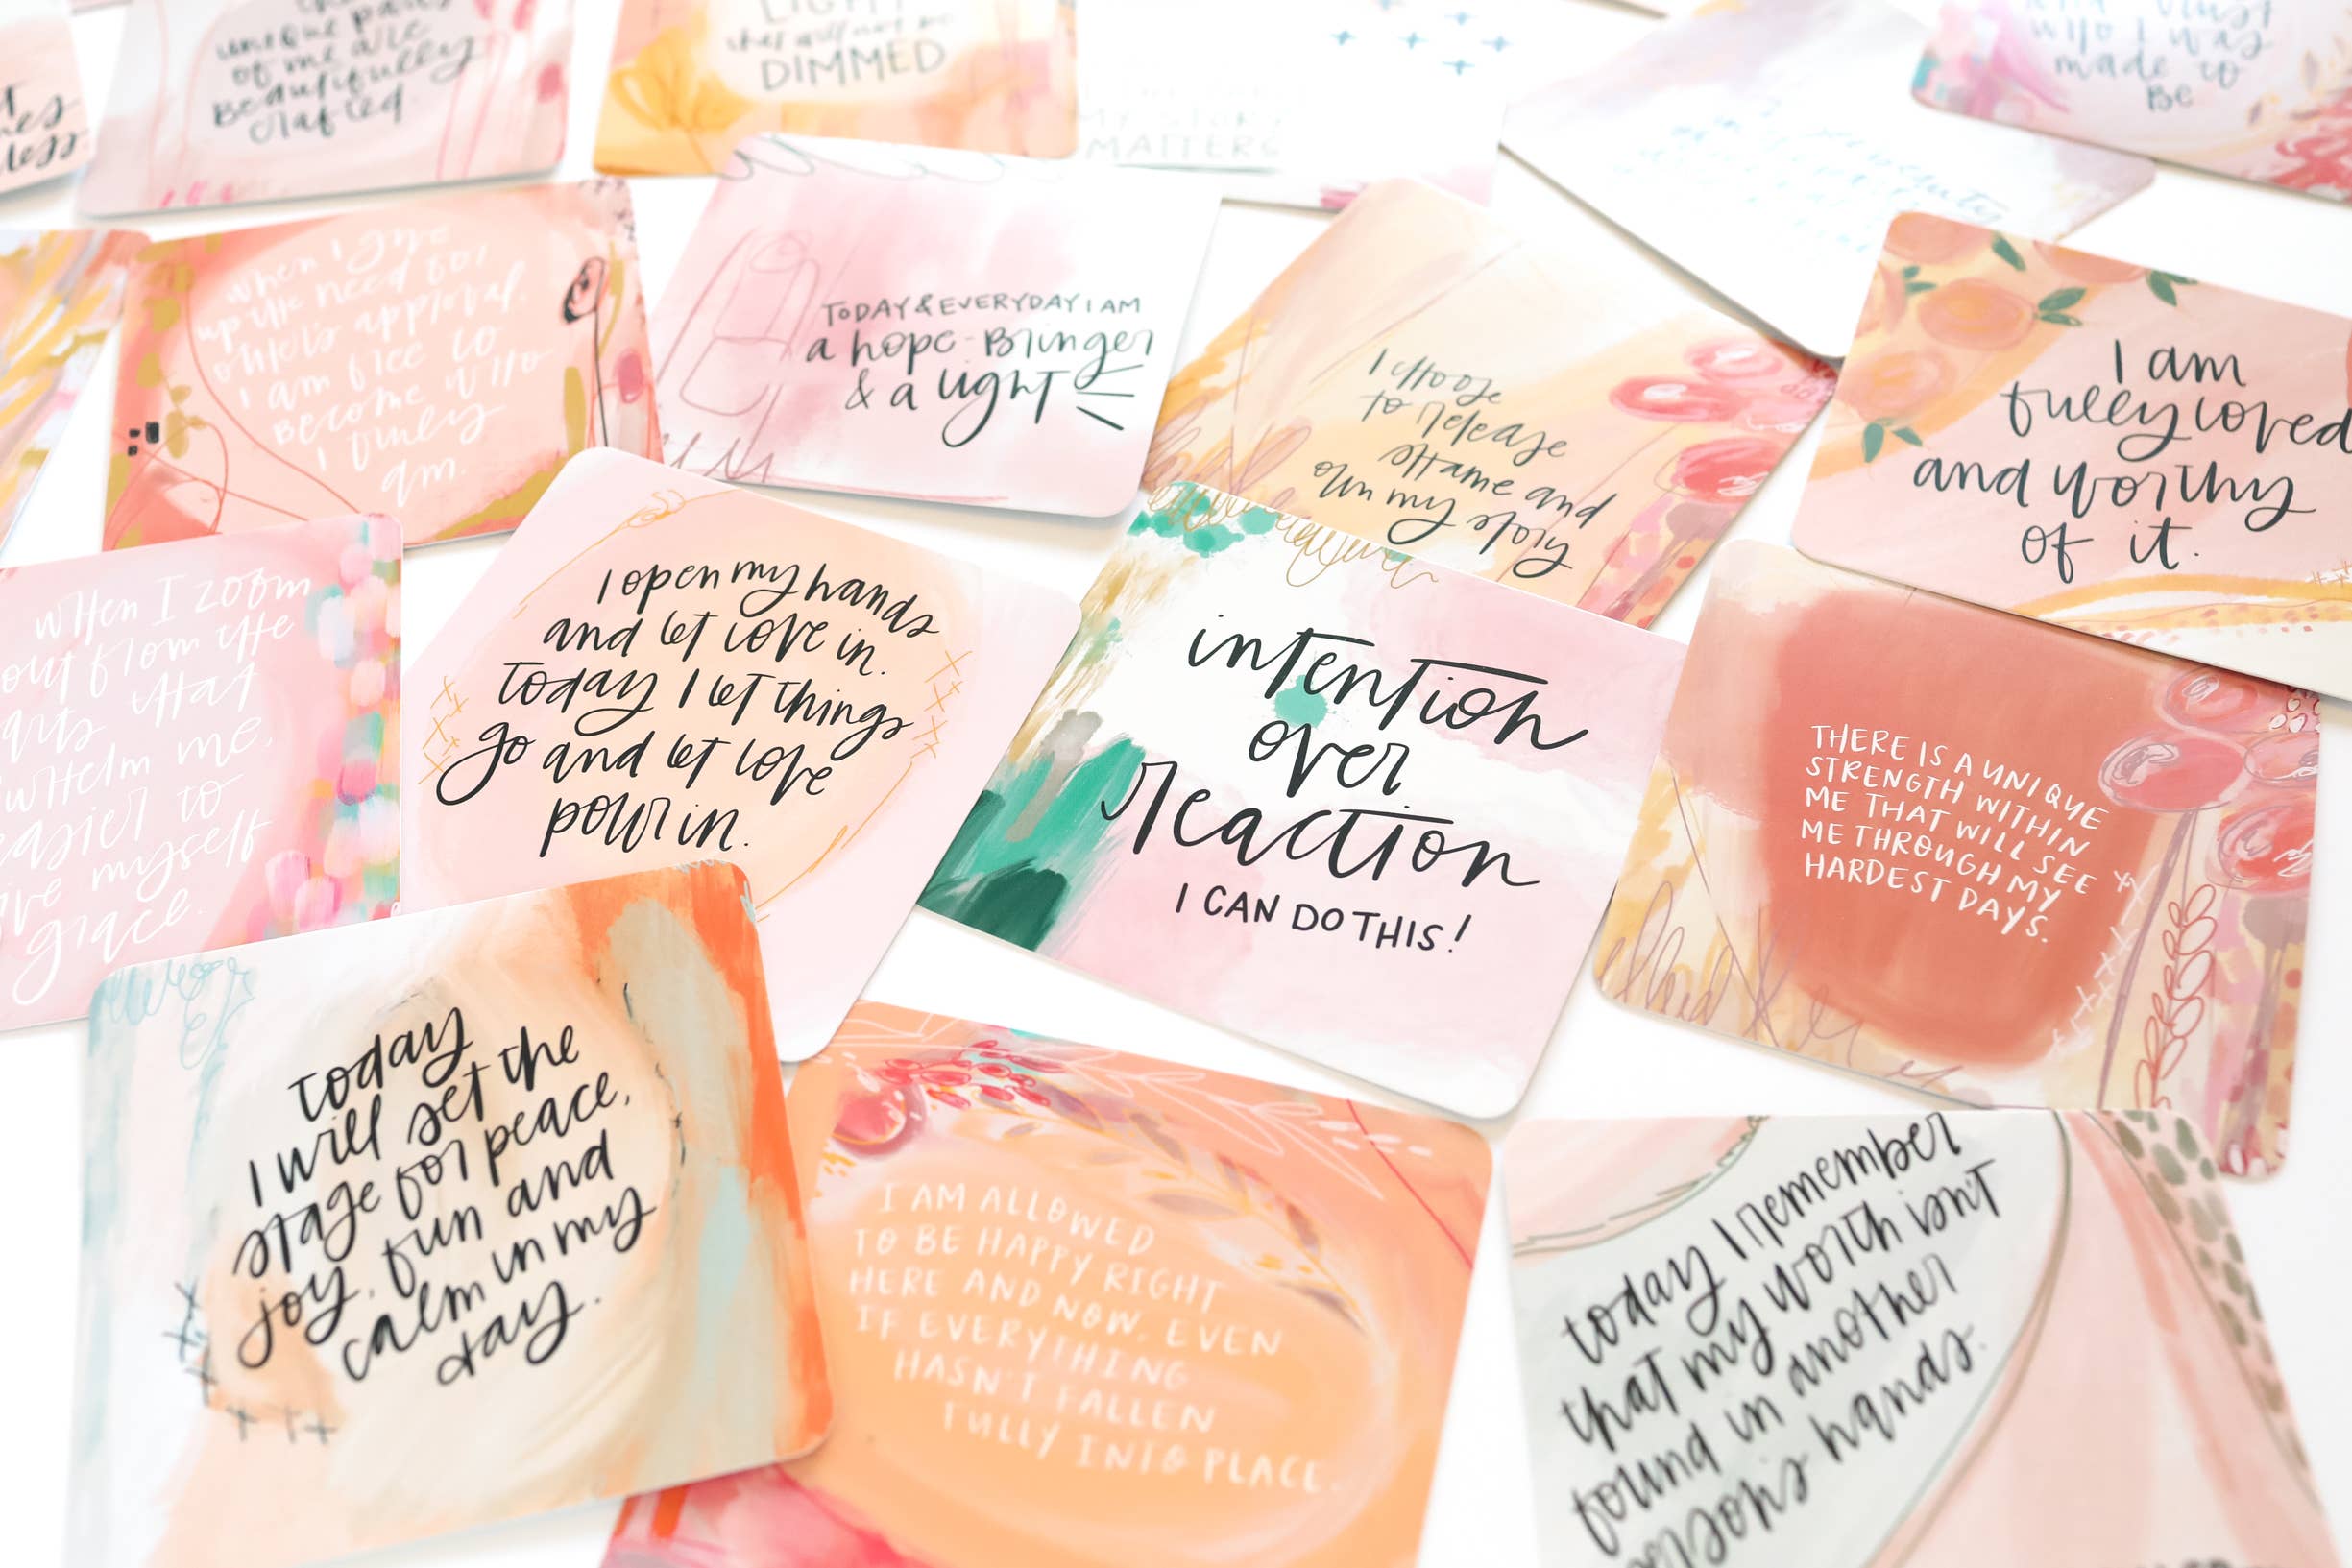 unique parts
of me are
Beautifully
crafted.
LIGHT
that will not be
DIMMED
MY STORY
MATTERS
who I was
made to
Be
when I give
up the need for
other's approval.
I am free to
Become who
I truly
am.
TODAY & EVERYDAY I AM
a hope-Bringer
& a light
I choose
to release
shame and
own my story
I am
fully loved
and worthy
of it.
when I zoom
out from the
that
me,
easier to
myself
grace.
I open my hands
and let love in.
Today I let things
go and let love
pour in.
intention
over
reaction
I CAN DO THIS!
THERE IS A UNIQUE
STRENGTH WITHIN
ME THAT WILL SEE
ME THROUGH MY
HARDEST DAYS.
today
I will set the
stage for peace,
joy, fun and
calm in my
day.
I AM ALLOWED
TO BE HAPPY RIGHT
HERE AND NOW, EVEN
IF EVERYTHING
HASN'T FALLEN
FULLY INTO PLACE.
today I remember
that my worth isn't
found in another
person's hands.